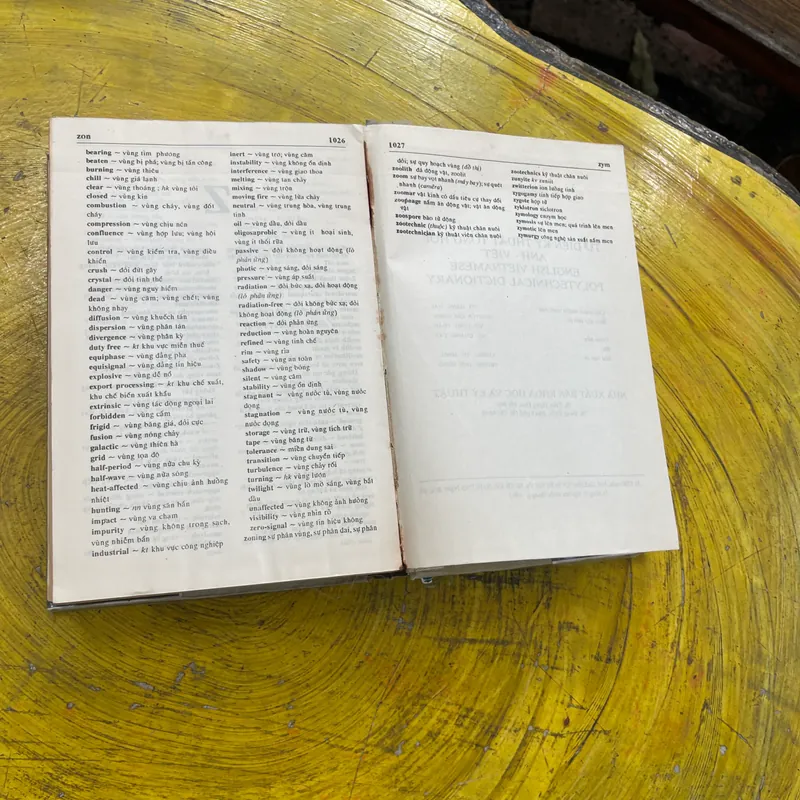 zon
1026
bearing ~ vùng tìm phương
beaten ~ vùng bị phá; vùng bị tấn công
burning ~ vùng thiêu
chill ~ vùng giá lạnh
clear ~ vùng thoáng; hk vùng tối
closed ~ vùng kín
combustion ~ vùng cháy, vùng đốt
cháy
compression ~ vùng chịu nén
confluence ~ vùng hợp lưu; vùng hội
lưu
control ~ vùng kiểm tra, vùng điều
khiển
crush ~ đới đứt gãy
crystal ~ đới tinh thể
danger ~ vùng nguy hiểm
dead ~ vùng câm; vùng chết; vùng
không nhạy
diffusion ~ vùng khuếch tán
dispersion ~ vùng phân tán
divergence ~ vùng phân kỳ
duty free ~ kt khu vực miễn thuế
equiphase ~ vùng đẳng pha
equisignal ~ vùng đẳng tín hiệu
explosive ~ vùng dễ nổ
export processing ~ kt khu chế xuất,
khu chế biến xuất khẩu
extrinsic ~ vùng tác động ngoại lai
forbidden ~ vùng cấm
frigid ~ vùng băng giá, đới cực
fusion ~ vùng nóng chảy
galactic ~ vùng thiên hà
grid ~ vùng tọa độ
half-period ~ vùng nửa chu kỳ
half-wave ~ vùng nửa sóng
heat-affected ~ vùng chịu ảnh hưởng
nhiệt
hunting ~ nn vùng săn bắn
impact ~ vùng va chạm
impurity ~ vùng không trong sạch,
vùng nhiễm bẩn
industrial ~ kt khu vực công nghiệp
inert ~ vùng trơ; vùng câm
instability ~ vùng không ổn định
interference ~ vùng giao thoa
melting ~ vùng tan chảy
mixing ~ vùng trộn
moving fire ~ vùng lửa cháy
neutral ~ vùng trung hòa, vùng trung
tính
oil ~ vùng dầu, đới dầu
oligosaprobic ~ vùng ít hoại sinh,
vùng ít thối rữa
passive ~ đới không hoạt động (lò
phản ứng)
photic ~ vùng sáng, đới sáng
pressure ~ vùng áp suất
radiation ~ đới bức xạ, đới hoạt động
(lò phản ứng)
radiation-free ~ đới không bức xạ; đới
không hoạt động (lò phản ứng)
reaction ~ đới phản ứng
reduction ~ vùng hoàn nguyên
refined ~ vùng tinh chế
rim ~ vùng rìa
safety ~ vùng an toàn
shadow ~ vùng bóng
silent ~ vùng câm
stability ~ vùng ổn định
stagnant ~ vùng nước tù, vùng nước
đọng
stagnation ~ vùng nước tù, vùng
nước đọng
storage ~ vùng trữ, vùng tích trữ
tape ~ vùng băng từ
tolerance ~ miền dung sai
transition ~ vùng chuyển tiếp
turbulence ~ vùng chảy rối
turning ~ hk vùng lượn
twilight ~ vùng lờ mờ sáng, vùng bắt
đầu
unaffected ~ vùng không ảnh hưởng
visibility ~ vùng nhìn rõ
zero-signal ~ vùng tín hiệu không
zoning sự phân vùng, sự phân đai, sự phân
1027
zym
đới; sự quy hoạch vùng (đô thị)
zoolith đá động vật, zoolit
zoom sự bay vọt nhanh (máy bay); sự quét
nhanh (camêra)
zoomar vật kính có dấu tiêu cự thay đổi
zoophage nấm ăn động vật; vật ăn động
vật
zoospore bào tử động
zootechnic (thuộc) kỹ thuật chăn nuôi
zootechnician kỹ thuật viên chăn nuôi
zootechnics kỹ thuật chăn nuôi
zunyite kv zunit
zwitterion ion lưỡng tính
zygogamy tính tiếp hợp giao
zygote hợp tử
zyklotron xiclotron
zymology enzym học
zymosis sự lên men, quá trình lên men
zymotic lên men
zymurgy công nghệ sản xuất nấm men